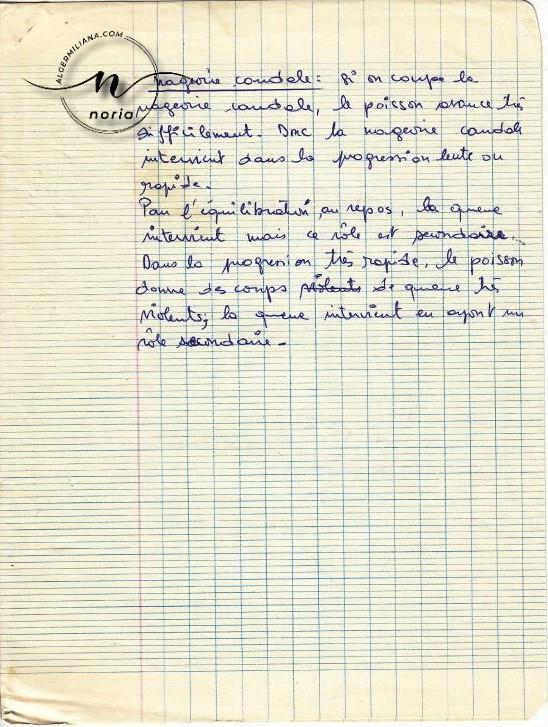 ALGERMILIANA.COM
n
noria
nageoire caudale : Si on coupe la
nageoire caudale, le poisson avance très
difficilement. Donc la nageoire caudale
intervient dans la progression lente ou
rapide.
Pour l'équilibration, au repos, la queue
intervient mais ce rôle est secondaire.
Dans la progression très rapide, le poisson
donne des coups violents de queue très
violents; la queue intervient en ayant un
rôle secondaire -